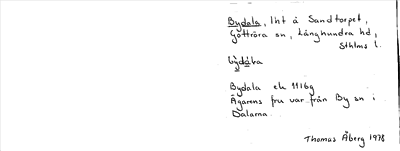 Bydala, lht å Sandtorpet,
Gottröra sn, Långhundra hd,
Sthlms l.
Bydala ek 1116g
Ägarens fru var från By sn i
Dalarna
Thomas Åberg 1978